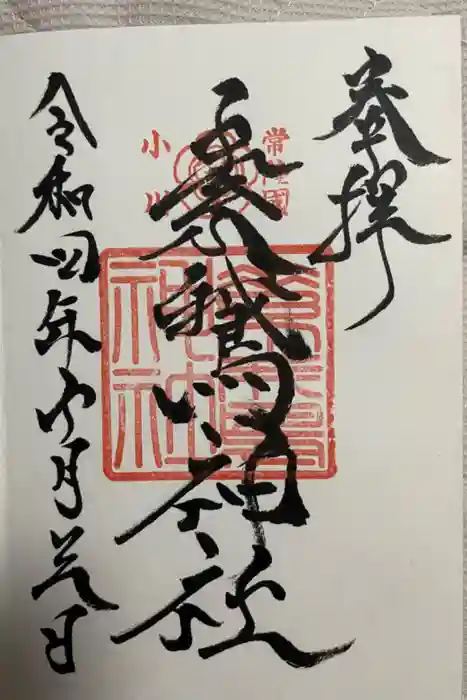 奉拝
常陸國
小川
素鵞神社
素鵞神社
令和四年 月 日